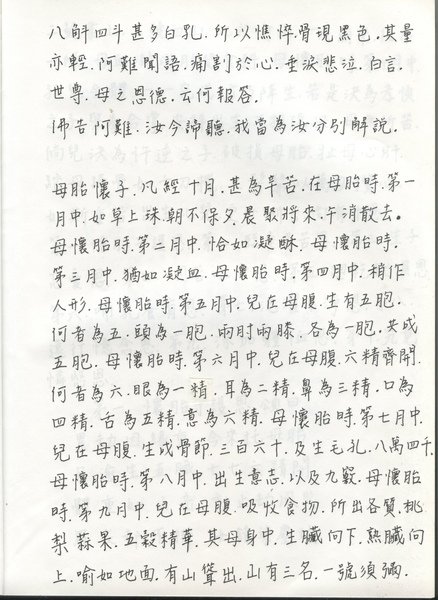 八斛四斗甚多白乳.所以憔悴.骨現黑色.其量
亦輕.阿難聞語.痛割於心.垂淚悲泣.白言.
世尊.母之恩德.云何報答.
佛告阿難.汝今諦聽.我當為汝分別解說.
母胎懷子.凡經十月.甚為辛苦.在母胎時.第一
月中.如草上珠.朝不保夕.晨聚將來.午消散去。
母懷胎時.第二月中.恰如凝酥.母懷胎時.
第三月中.猶如凝血.母懷胎時.第四月中.稍作
人形.母懷胎時.第五月中.兒在母腹.生有五胞.
何者為五.頭為一胞.兩肘兩膝.各為一胞.共成
五胞.母懷胎時.第六月中.兒在母腹.六精齊開.
何者為六.眼為一精.耳為二精.鼻為三精.口為
四精.舌為五精.意為六精.母懷胎時.第七月中.
兒在母腹.生成骨節.三百六十.及生毛孔.八萬四千.
母懷胎時.第八月中.出生意志.以及九竅.母懷胎
時.第九月中.兒在母腹.吸收食物.所出各質.桃
梨蒜果.五穀精華.其母身中.生臟向下.熟臟向
上.喻如地面.有山聳出.山有三名.一號須彌.